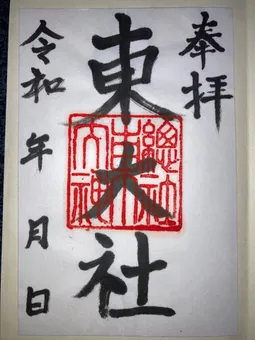 奉拝
東大社
令和年月日